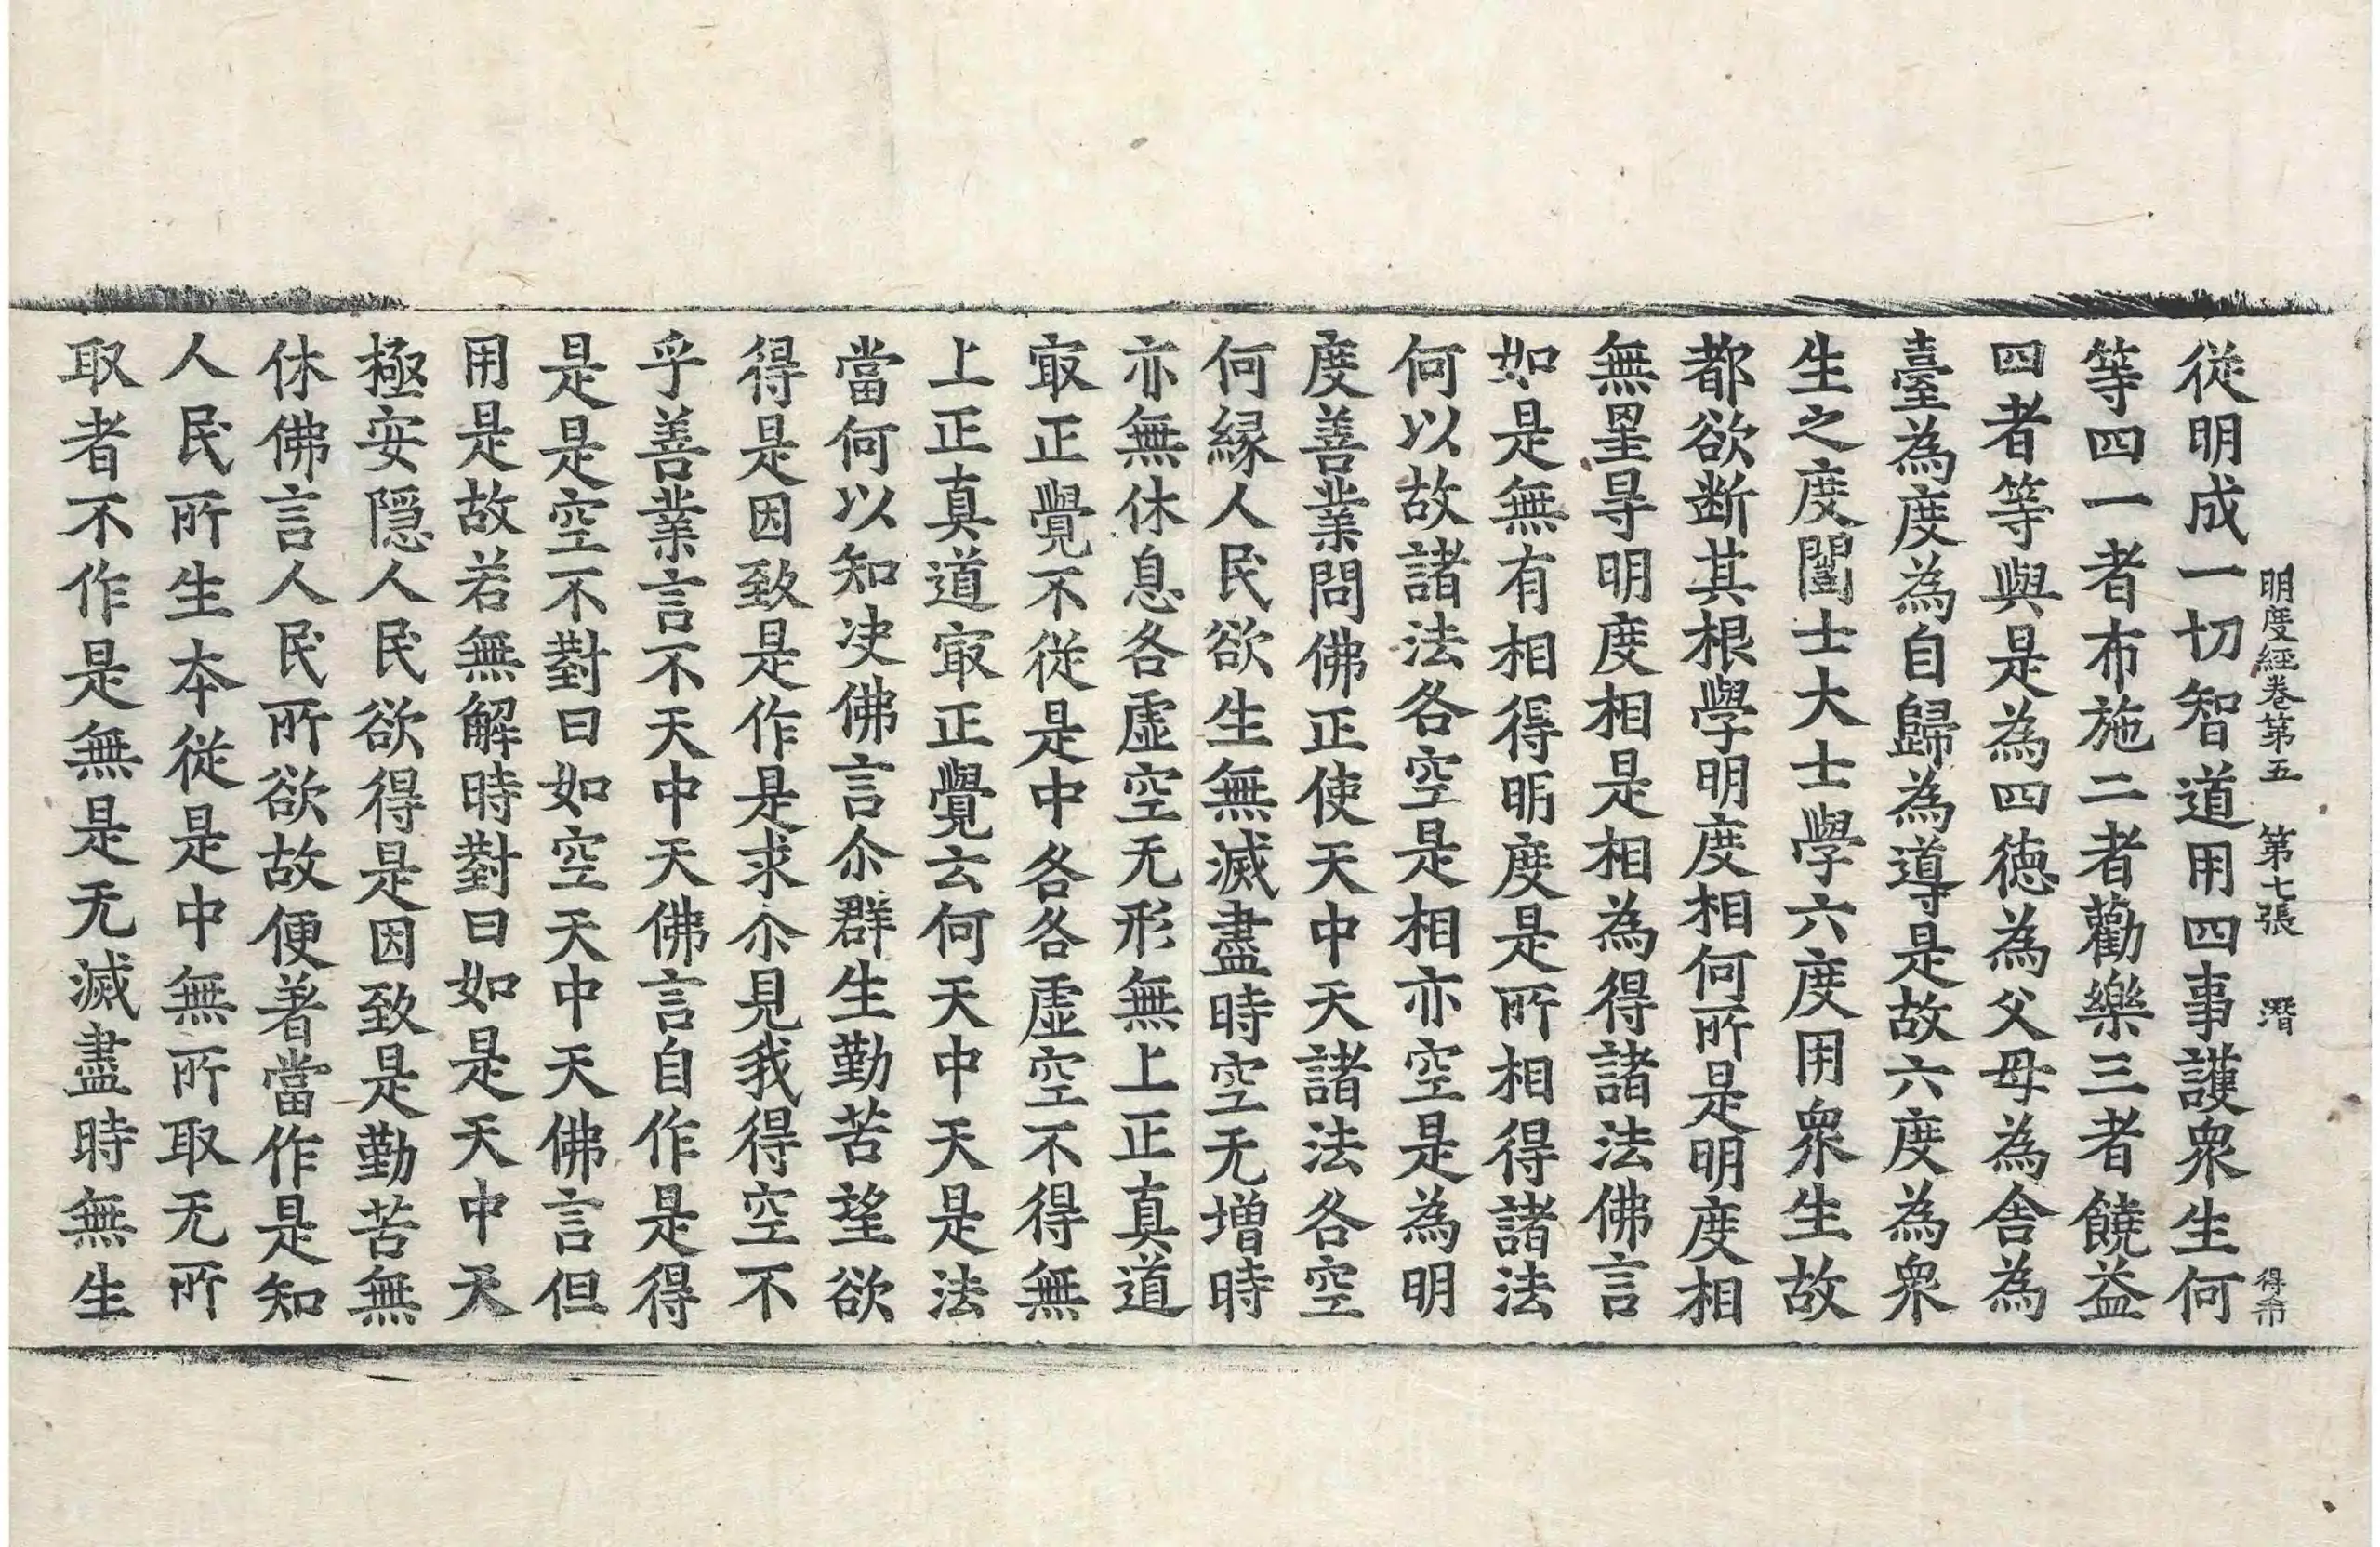 明度經卷第五　第七張　潛　得帀
從明成一切智道用四事護衆生何
等四一者布施二者勸樂三者饒益
四者等與是為四德為父母為舍為
臺為度為自歸為導是故六度為衆
生之度闓士大士學六度用衆生故
都欲断其根學明度相何所是明度相
無罣㝵明度相是相為得諸法佛言
如是無有相得明度是所相得諸法
何以故諸法各空是相亦空是為明
度善業問佛正使天中天諸法各空
何緣人民欲生無滅盡時空无增時
亦無休息各虛空无形無上正真道
㝡正覺不從是中各各虛空不得無
上正真道㝡正覺云何天中天是法
當何以知决佛言尒群生勤苦望欲
得是因致是作是求尒見我得空不
乎善業言不天中天佛言自作是得
是是空不對曰如空天中天佛言但
用是故若無解時對曰如是天中天
極安隱人民欲得是因致是勤苦無
休佛言人民所欲故便著當作是知
人民所生本從是中無所取无所
取者不作是無是无滅盡時無生